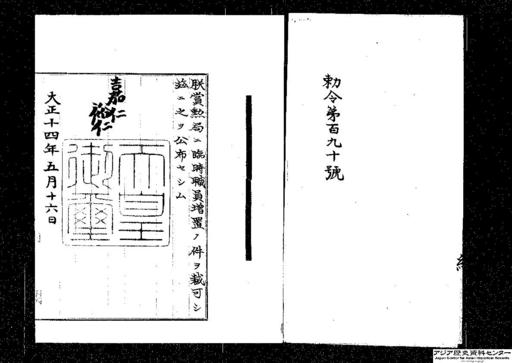 勅令第百九十號
朕賞勲局ニ臨時職員増置ノ件ヲ裁可シ
茲ニ之ヲ公布セシム
嘉仁
裕仁
天皇
御璽
大正十四年五月十六日
アジア歴史資料センター
Japan Center for Asian Historical Records